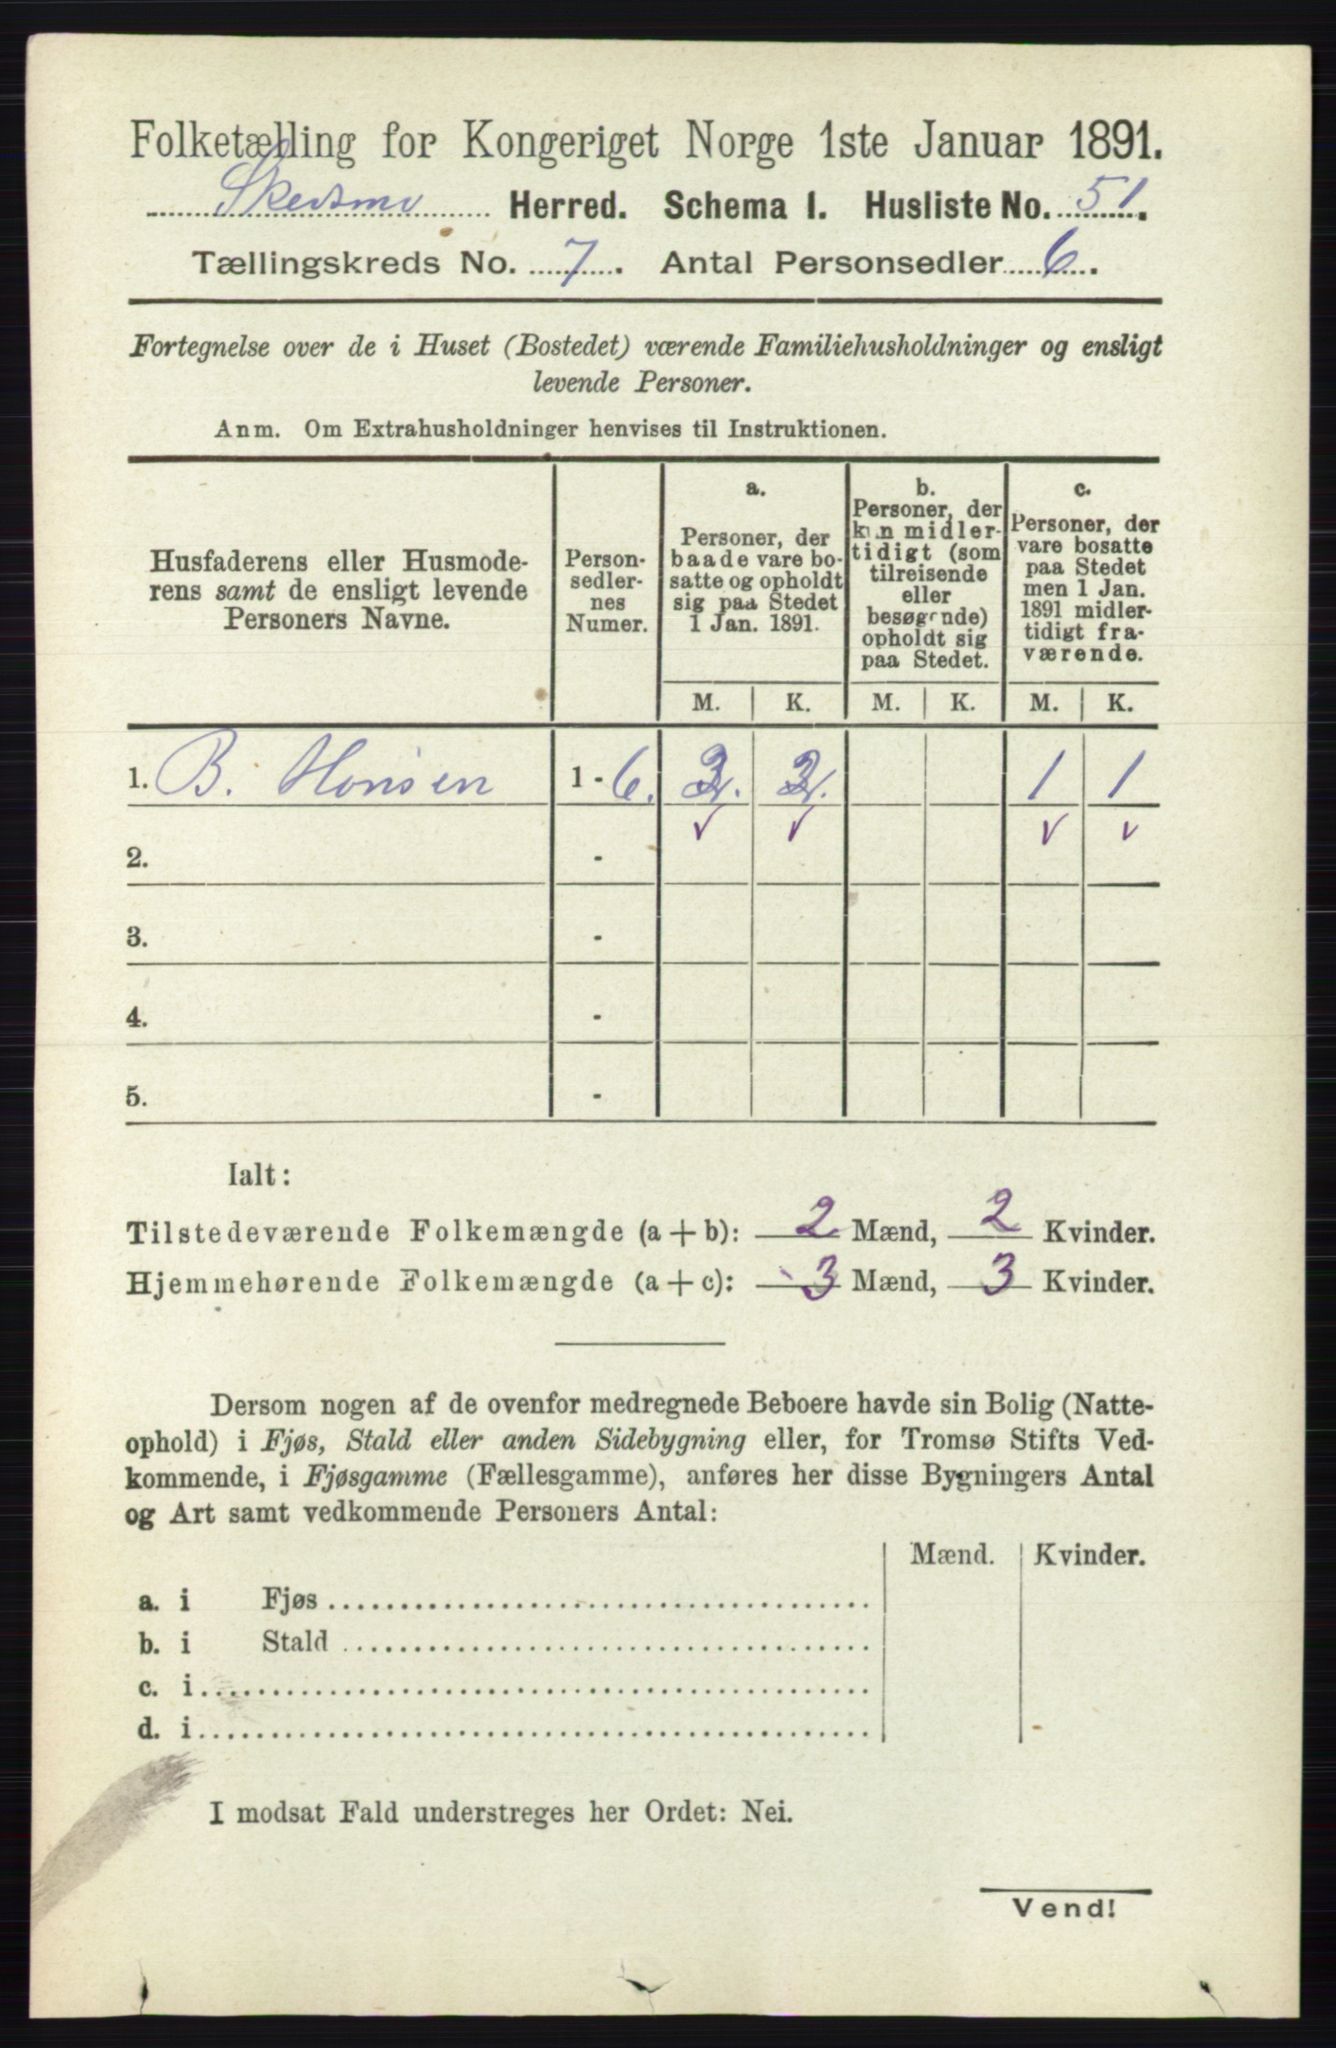 Folketælling for Kongeriget Norge 1ste Januar 1891.
Skedsmo Herred. Schema I. Husliste No. 51.
Tællingskreds No. 7. Antal Personsedler 6.
Fortegnelse over de i Huset (Bostedet) værende Familiehusholdninger og ensligt
levende Personer.
Anm. Om Extrahusholdninger henvises til Instruktionen.
Husfaderens eller Husmode-
rens samt de ensligt levende
Personers Navne.
Person-
sedler-
nes
Numer.
a.
Personer, der
baade vare bo-
satte og opholdt
sig paa Stedet
1 Jan. 1891.
b.
Personer, der
kun midler-
tidigt (som
tilreisende
eller
besøgende)
opholdt sig
paa Stedet.
c.
Personer, der
vare bosatte
paa Stedet
men 1 Jan.
1891 midler-
tidigt fra-
værende.
M. K. M. K. M. K.
1. B. Hansen 1 - 6. 2. 2. 1 1
2. -
3. -
4. -
5. -
Ialt:
Tilstedeværende Folkemængde (a + b): 2 Mænd, 2 Kvinder.
Hjemmehørende Folkemængde (a + c): 3 Mænd, 3 Kvinder.
Dersom nogen af de ovenfor medregnede Beboere havde sin Bolig (Natte-
ophold) i Fjøs, Stald eller anden Sidebygning eller, for Tromsø Stifts Ved-
kommende, i Fjøsgamme (Fællesgamme), anføres her disse Bygningers Antal
og Art samt vedkommende Personers Antal:
Mænd. Kvinder.
a. i Fjøs
b. i Stald
c. i
d. i
I modsat Fald understreges her Ordet: Nei.
Vend!